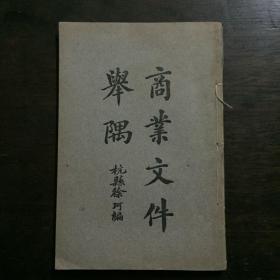 商業文件
舉隅
杭縣徐珂編